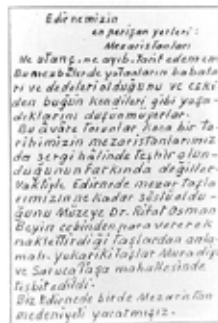 Edirnemizin
en perişan yerleri:
Mezaristanları
Ne utanç, ne ayıb, tarif edemem
Bu mezbelerde yatanların babala
rı ve dedeleri olduğunu ve eski
den bugün kendileri gibi yaşa
dıklarını düşünmüyorlar.
Bu âvâre torunlar, koca bir ta
rihimizin mezaristanlarımız
da sergi hâlinde teşhir olun
duğunun farkında değiller.
Vaktiyle Edirnede mezar taşla
rımızın ne kadar süslü oldu
ğunu Müzeye Dr. Rifat Osman
Beyin cebinden para vererek
naklettirdiği taşlardan anla
malı. Yukarıki taşlar Muradiye
de Saruca Paşa mahallesinde
tesbit edildi.
Biz Edirnede birde Mezaristan
medeniyeti yaratmışız.